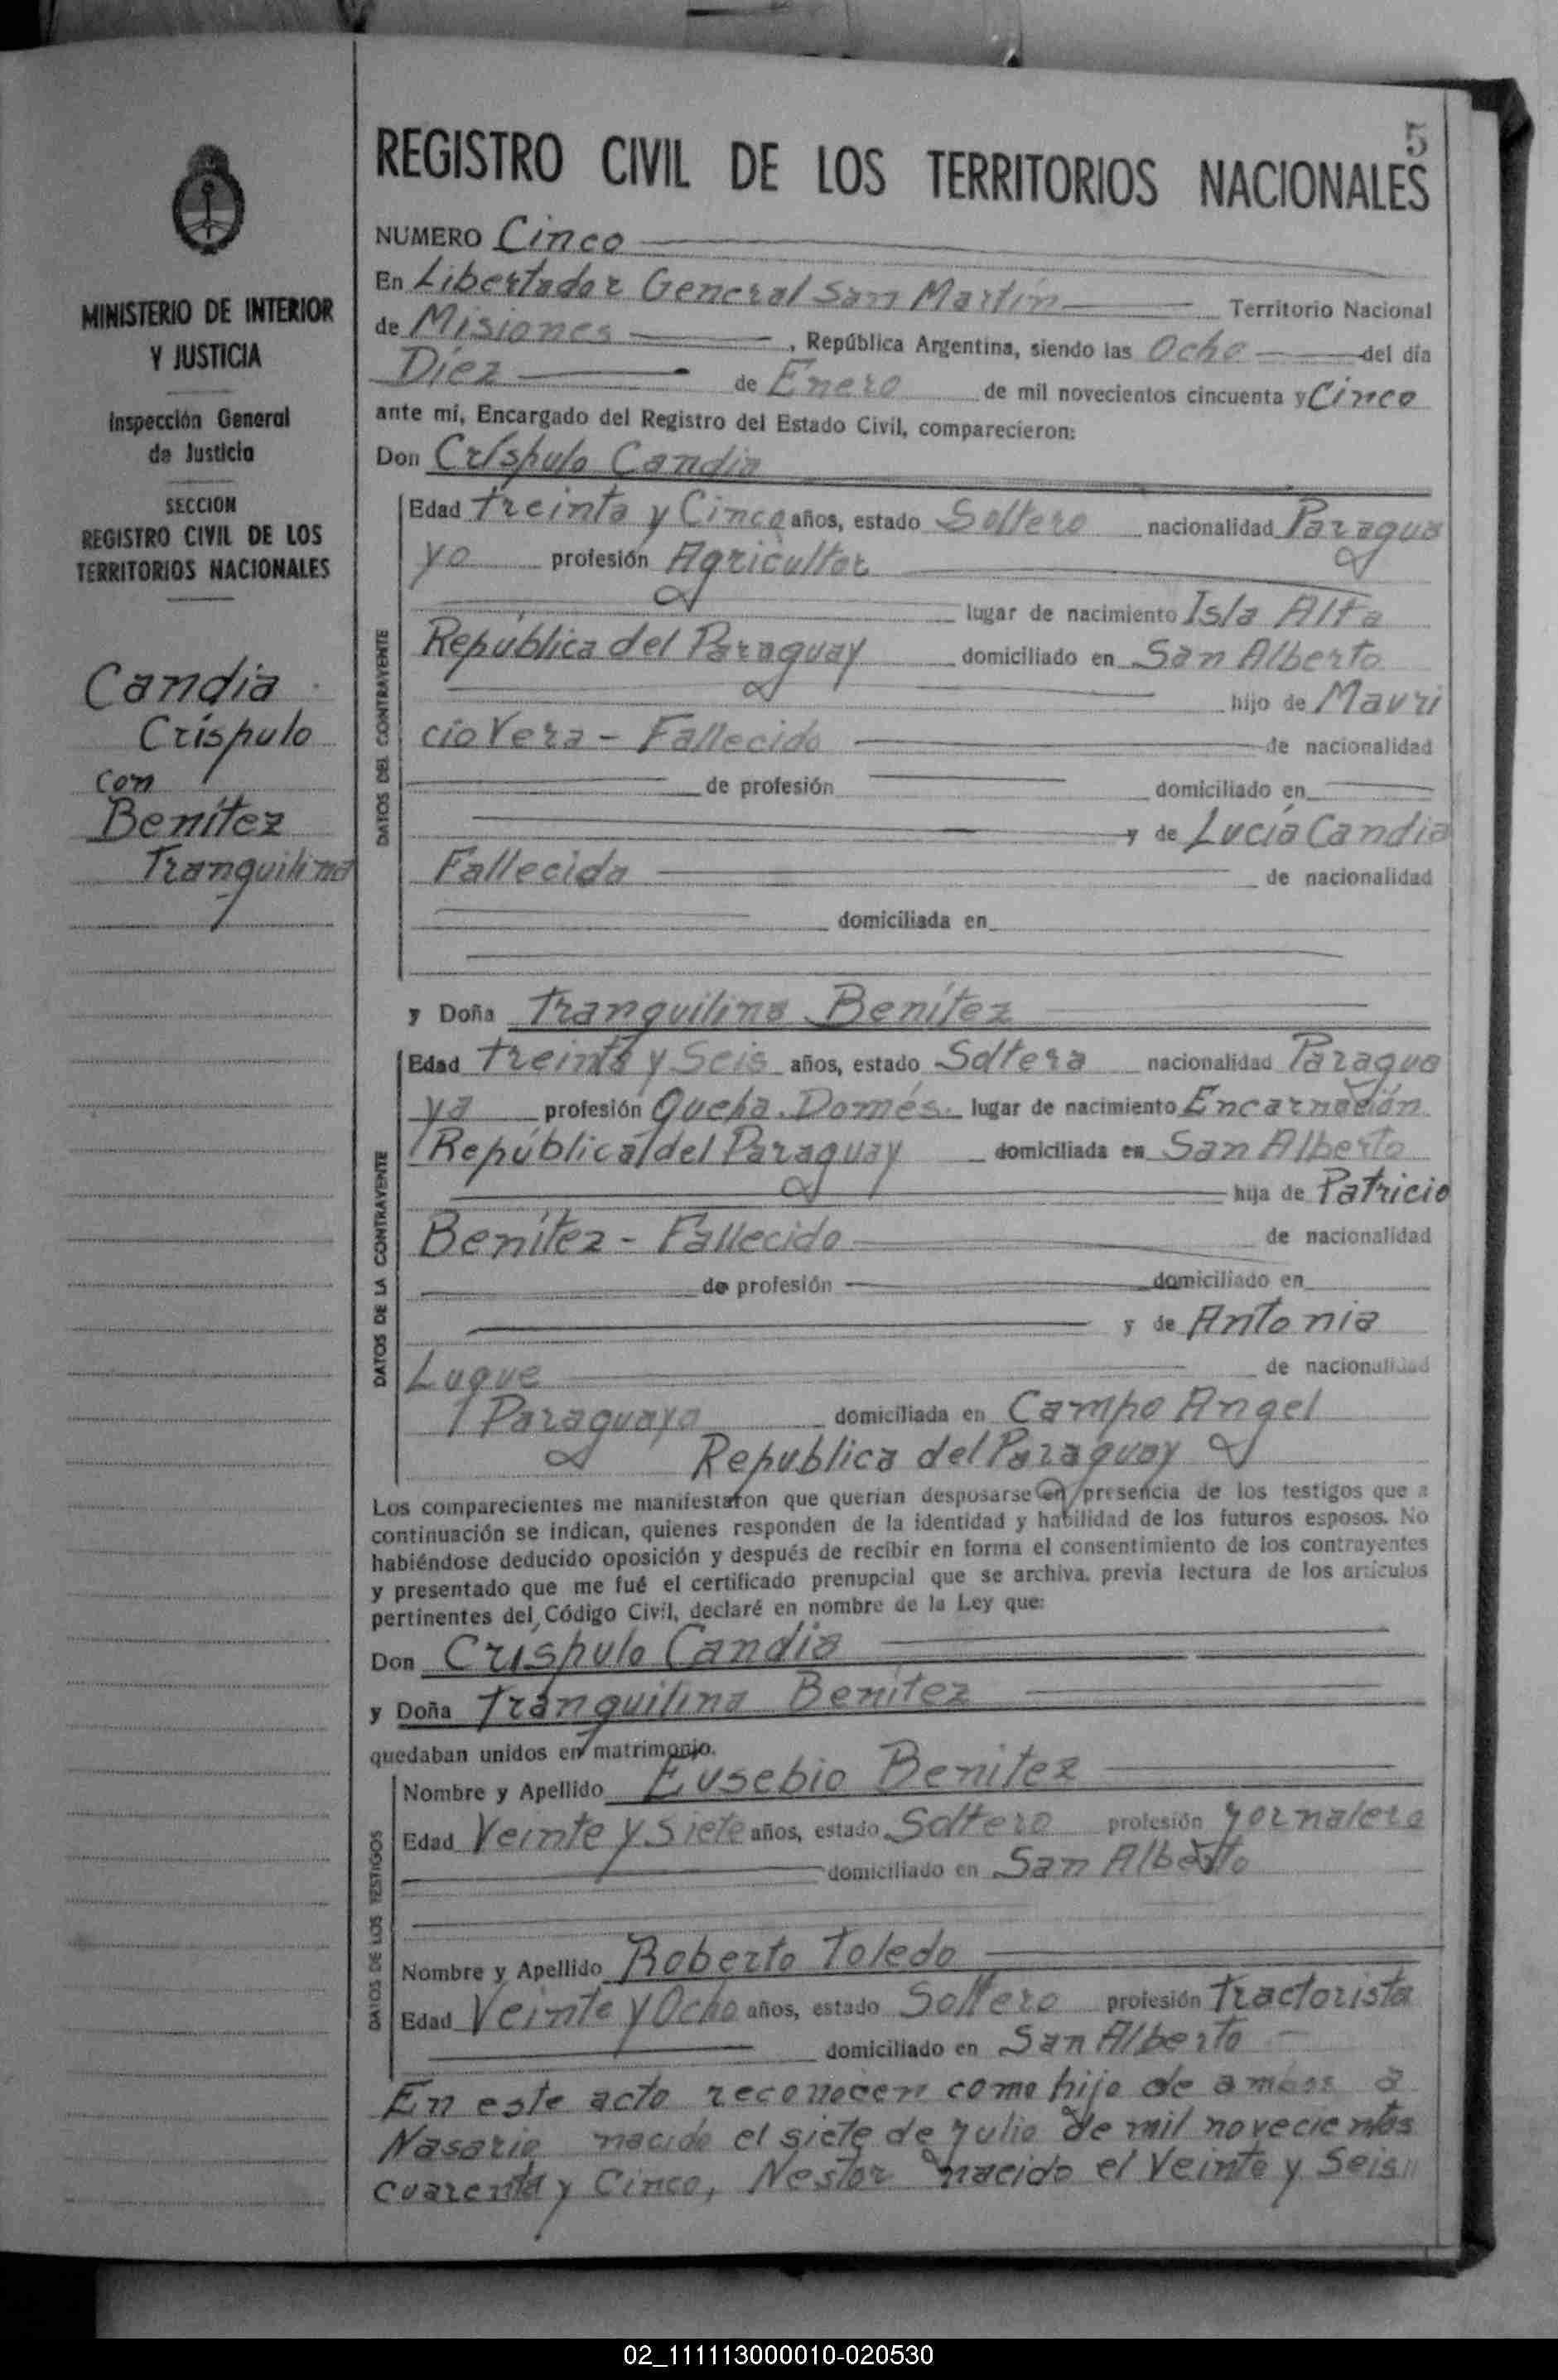 5
REGISTRO CIVIL DE LOS TERRITORIOS NACIONALES
MINISTERIO DE INTERIOR
Y JUSTICIA
Inspección General
de Justicia
SECCION
REGISTRO CIVIL DE LOS
TERRITORIOS NACIONALES
Candia
Críspulo
con
Benítez
Tranquilina
NUMERO Cinco
En Libertador General San Martín Territorio Nacional
de Misiones , República Argentina, siendo las Ocho del día
Diez de Enero de mil novecientos cincuenta y Cinco
ante mí, Encargado del Registro del Estado Civil, comparecieron:
Don Críspulo Candia
DATOS DEL CONTRAYENTE
Edad treinta y Cinco años, estado Soltero nacionalidad Paragua
yo profesión Agricultor
lugar de nacimiento Isla Alta
República del Paraguay domiciliado en San Alberto
hijo de Mauri
cio Vera - Fallecido de nacionalidad
de profesión domiciliado en
y de Lucía Candia
Fallecida de nacionalidad
domiciliada en
y Doña Tranquilina Benítez
DATOS DE LA CONTRAYENTE
Edad treinta y Seis años, estado Soltera nacionalidad Paragua
ya profesión Queha. Domés. lugar de nacimiento Encarnación
República del Paraguay domiciliada en San Alberto
hija de Patricio
Benítez - Fallecido de nacionalidad
de profesión domiciliado en
y de Antonia
Luque de nacionalidad
Paraguaya domiciliada en Campo Angel
Republica del Paraguay
Los comparecientes me manifestaron que querían desposarse en presencia de los testigos que a
continuación se indican, quienes responden de la identidad y habilidad de los futuros esposos. No
habiéndose deducido oposición y después de recibir en forma el consentimiento de los contrayentes
y presentado que me fué el certificado prenupcial que se archiva, previa lectura de los artículos
pertinentes del Código Civil, declaré en nombre de la Ley que:
Don Críspulo Candia
y Doña Tranquilina Benítez
quedaban unidos en matrimonio.
DATOS DE LOS TESTIGOS
Nombre y Apellido Eusebio Benitez
Edad Veinte y Siete años, estado Soltero profesión Jornalero
domiciliado en San Alberto
Nombre y Apellido Roberto Toledo
Edad Veinte y Ocho años, estado Soltero profesión tractorista
domiciliado en San Alberto
En este acto reconocen como hijo de ambos a
Nasario nacido el siete de Julio de mil novecientos
cuarenta y Cinco, Nestor nacido el Veinte y Seis
02_111113000010-020530